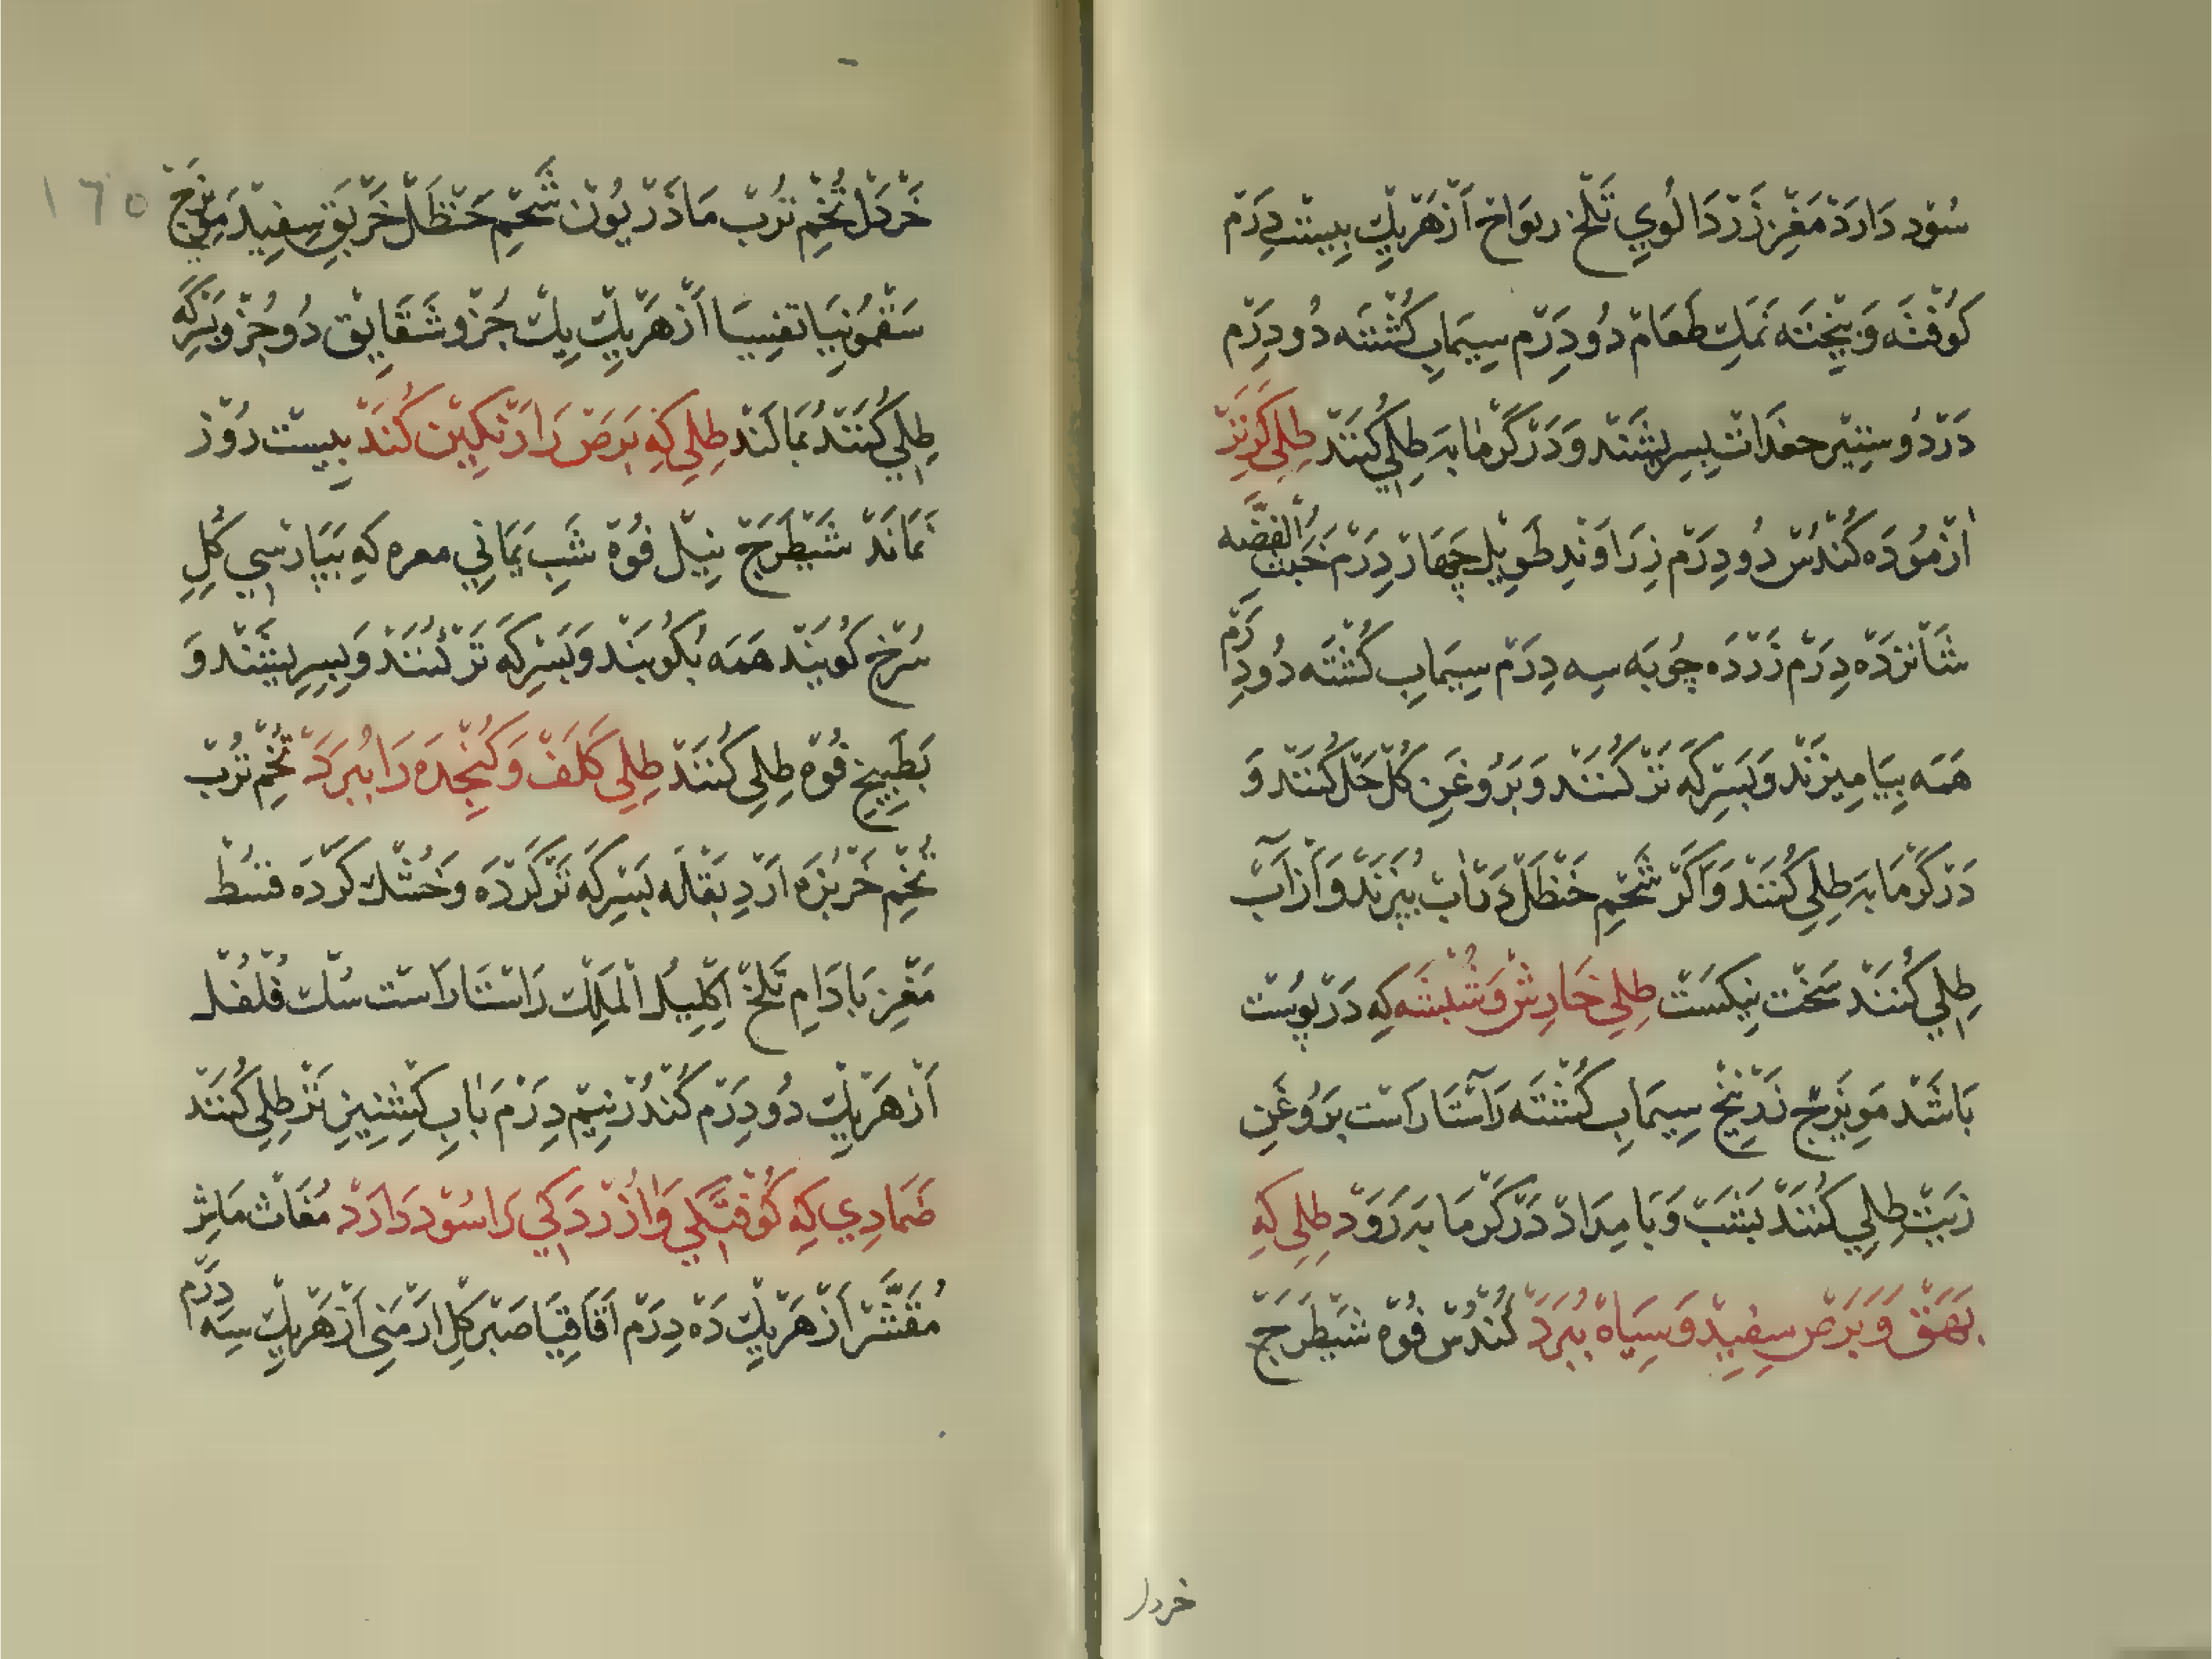 سُوْد دَارَدْ مَغْزِ زَرْدَالُويِ تَلْخ ريوَاخ اَزْهَرْيِكْ بِيِسْت دِرَمْ
كُوفْتَه وَ بِيخْتَه نَمَكِ طَعَامْ دُو دِرَمْ سِيمَابِ كُشْتَه دُو دِرَمْ
دَرْدُو سِتِيرْ حغدَاتْ بِسِرِيشَنْد وَ دَرْ گَرْمَابَه طِلِي كُنَنْدْ طِلِي كَرِ تَرْ
اَزْمُودَه كُنْدُسْ دُو دِرَمْ زِرَاوَنْدِ طَوِيلْ چَهَارْ دِرَمْ خَبَثُ الْفِضَّه
شَانْزَدَه دِرَمْ زَرْدَه چُوبَه سِه دِرَمْ سِيمَابِ كُشْتَه دُو دِرَمْ
هَمَه بِيَامِيزَنْد وَ بَسِرْكَه تَرْ كُنَنْد وَ بَرُوغَنِ كُلْ حَلْ كُنَنْد وَ
دَرْ گَرْمَابَه طِلِي كُنَنْد وَ اَگَرْ شَحْمِ حَنْظَلْ دَرْ اٰبْ بِپَزَنْد وَ اَزْ اٰنْ آبْ
طِلِي كُنَنْد سَخْت نِيكَسْت طِلِي خَارِشْ وَ شُبُشَه كِه دَرْ پُوسْت
بَاشَدْ مَوِيزَجْ زَرْنِيخْ سِيمَابِ كُشْتَه رَاسْتَارَاسْت بَرُوغَنِ
زَيْتْ طِلِي كُنَنْد بَشَبْ وَ بَامِدَادْ دَرْ گَرْمَابَه رَوَدْ طِلِي كِه
بَهَقْ وَ بَرَصِ سِفِيدْ وَ سِيَاهْ بُبَرَدْ كُنْدُسْ فُوَّهْ شَيْطَرَجْ
خردل
١٦٥
خَرْدَلْ تُخْمِ تُرُبْ مَاذَرْيُونْ شَحْمِ حَنْظَلْ خَرْبَقِ سِفِيدْ مَوِيزَجْ
سَقْمُونِيَا تفِسِيَا اَزْهَرْيِكْ يِكْ جُزْو شَقَايِقْ دُو جُزْو بَسِرْكَه
طِلِي كُنَنْد بُمَالَنْد طِلِي كِه بَرَصْ رَا رَنْگِينْ كُنَدْ بِيِسْت رُوزْ
بَمَانَدْ شَيْطَرَجْ نِيلْ فُوَّهْ شَبِ يَمَانِي معره كِه بَپَارْسِي گِلِ
سُرْخ گُويَنْد هَمَه بُكُوبَنْد وَ بَسِرْكَه تَرْ كُنَنْد وَ بِسِرِيشَنْد وَ
بَطَبِيخِ فُوَّه طِلِي كُنَنْدْ طِلِي كَلَفْ وَ كُنْجِدَه رَا بُبَرَدْ تُخْمِ تُرُبْ
تُخْمِ خَرْبُزَه اَرْدِ بَقْلَه بَسِرْكَه تَرْ كَرْدَه وَ خُشْك كَرْدَه قُسْطْ
مَغْزِ بَادَامِ تَلْخْ اِكْلِيلُ الْمَلِكْ رَاسْتَارَاسْت سُكْ فُلْفُلْ
اَزْهَرْيِكْ دُو دِرَمْ كُنْدُرْ نِيمْ دِرَمْ بَاٰبِ كِشْنِيزِ تَرْ طِلِي كُنَنْد
ضَمَادِي كِه كُوفْتَگِي وَ اٰزُرْدَگِي رَا سُوْد دَارَدْ مُغَاثْ مَاشِ
مُقَشَّرْ اَزْهَرْيِكْ دَه دِرَمْ اَقَاقِيَا صَبْرْ گِلِ اَرْمَنِي اَزْهَرْيِكْ سِه دِرَمْ